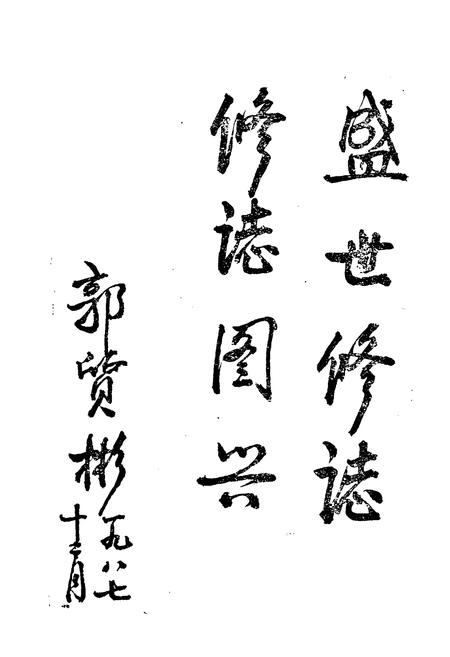 盛世修誌
修誌图兴
郭質彬
一九八七
十二月